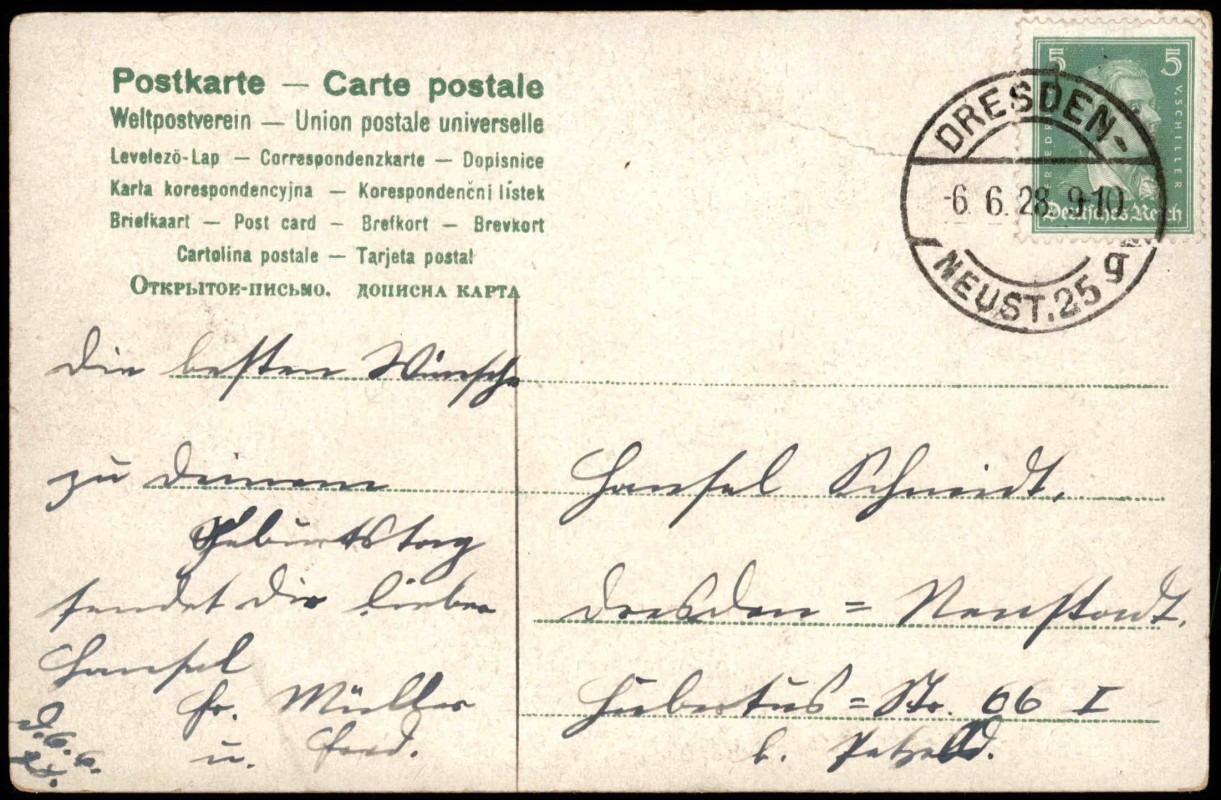 Postkarte — Carte postale
Weltpostverein — Union postale universelle
Levelező-Lap — Correspondenzkarte — Dopisnice
Karta korespondencyjna — Korespondenční lístek
Briefkaart — Post card — Brefkort — Brevkort
Cartolina postale — Tarjeta postal
Открытое-письмо. дописна карта
5 5
V. SCHILLER
Deutsches Reich
DRESDEN-
-6. 6. 28. 9-10
NEUST. 25 g
Die besten Wünsche
zu Deinem
Geburtstag
sendet Dir lieber
Hansel
Fr. Müller
u. Ferd.
d. 6. 6.
28.
Hansel Schmidt.
Dresden = Neustadt.
Hubertus = Str. 66 I
b. Petzold.